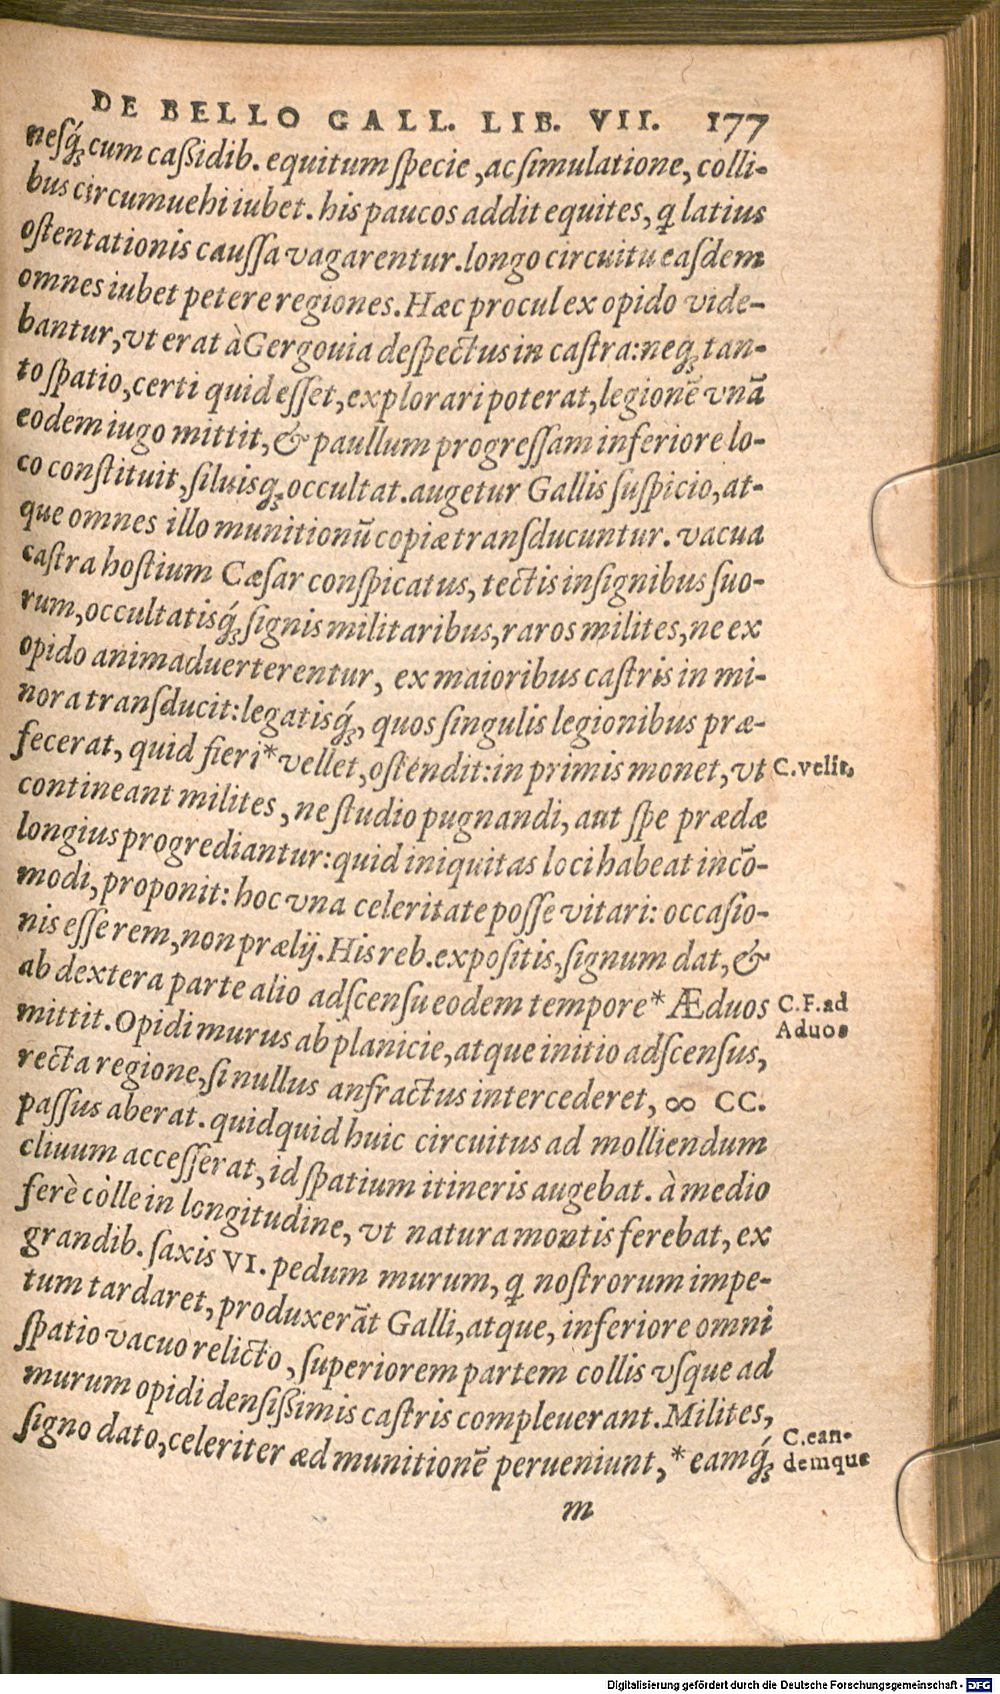 DE BELLO GALL. LIB. VII. 177
nesq́; cum caßidib. equitum ſpecie, ac ſimulatione, colli-
bus circumuehi iubet. his paucos addit equites, q latius
oſtentationis cauſſa vagarentur. longo circuitu eaſdem
omnes iubet petere regiones. Hæc procul ex opido vide-
bantur, vt erat à Gergouia deſpectus in caſtra: neq; tan-
to ſpatio, certi quid eſſet, explorari poterat, legionē vnā
eodem iugo mittit, & paullum progreſſam inferiore lo-
co conſtituit, ſiluisq; occultat. augetur Gallis ſuſpicio, at-
que omnes illo munitionū copiæ tranſducuntur. vacua
caſtra hoſtium Cæſar conſpicatus, tectis inſignibus ſuo-
rum, occultatisq́; ſignis militaribus, raros milites, ne ex
opido animaduerterentur, ex maioribus caſtris in mi-
nora tranſducit: legatisq́;, quos ſingulis legionibus præ-
fecerat, quid fieri* vellet, oſtendit: in primis monet, vt C. velit,
contineant milites, ne ſtudio pugnandi, aut ſpe prædæ
longius progrediantur: quid iniquitas loci habeat incō-
modi, proponit: hoc vna celeritate poſſe vitari: occaſio-
nis eſſe rem, non prælij. His reb. expoſitis, ſignum dat, &
ab dextera parte alio adſcenſu eodem tempore* Æduos C.F. ad
mittit. Opidi murus ab planicie, atque initio adſcenſus, Aduos
recta regione, ſi nullus anfractus intercederet, ∞ CC.
paſſus aberat. quidquid huic circuitus ad molliendum
cliuum acceſſerat, id ſpatium itineris augebat. à medio
ferè colle in longitudine, vt natura montis ferebat, ex
grandib. ſaxis VI. pedum murum, q noſtrorum impe-
tum tardaret, produxerāt Galli, atque, inferiore omni
ſpatio vacuo relicto, ſuperiorem partem collis vſque ad
murum opidi denſißimis caſtris compleuerant. Milites,
ſigno dato, celeriter æd munitionē perueniunt, * eamq́; C. ean-
demque
m
Digitalisierung gefördert durch die Deutsche Forschungsgemeinschaft - DFG